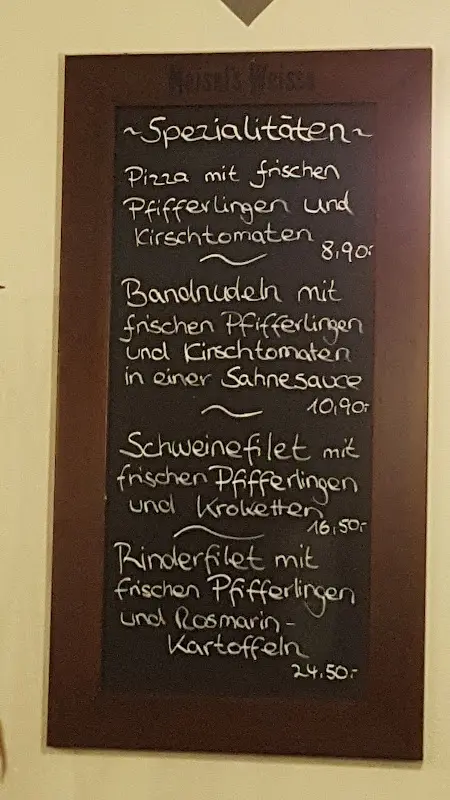 Meisel's Weisse
~Spezialitäten~
Pizza mit frischen
Pfifferlingen und
Kirschtomaten
8,90.-
Bandnudeln mit
frischen Pfifferlingen
und Kirschtomaten
in einer Sahnesauce
10,90.-
Schweinefilet mit
frischen Pfifferlingen
und Kroketten
16,50.-
Rinderfilet mit
frischen Pfifferlingen
und Rosmarin-
Kartoffeln
24.50.-